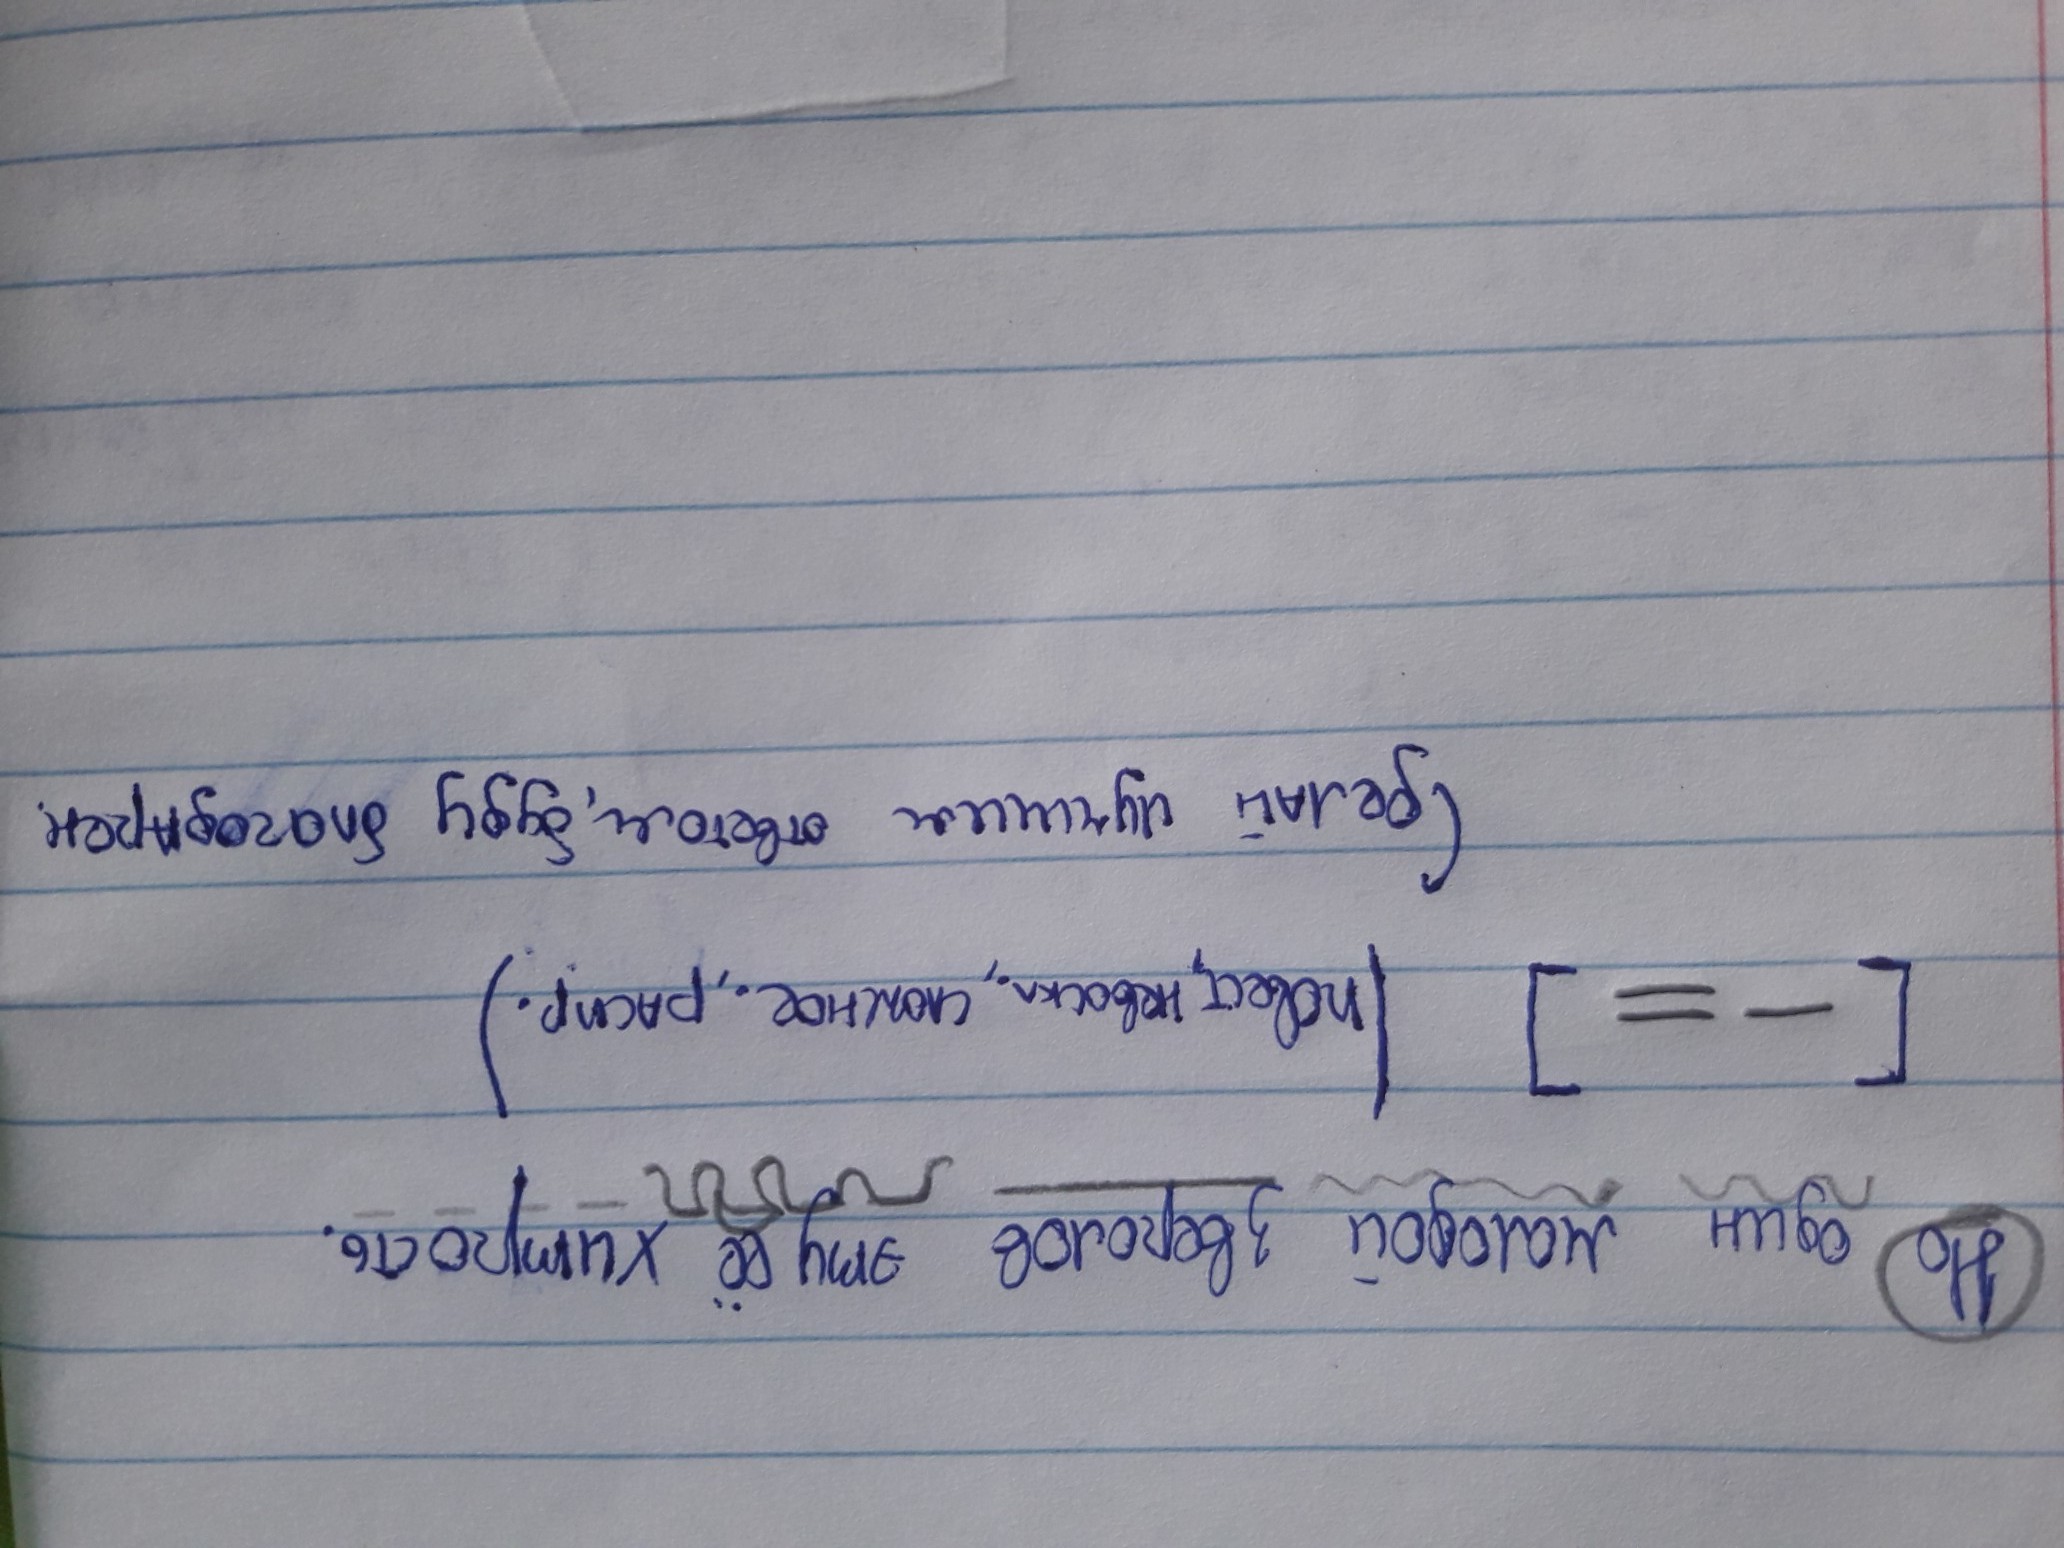 Но один молодой зверолов эту её хитрость.
[— =] (повест., невоскл., сложное., распр.)
Сделай пунктацию ответом, буду благодарен.